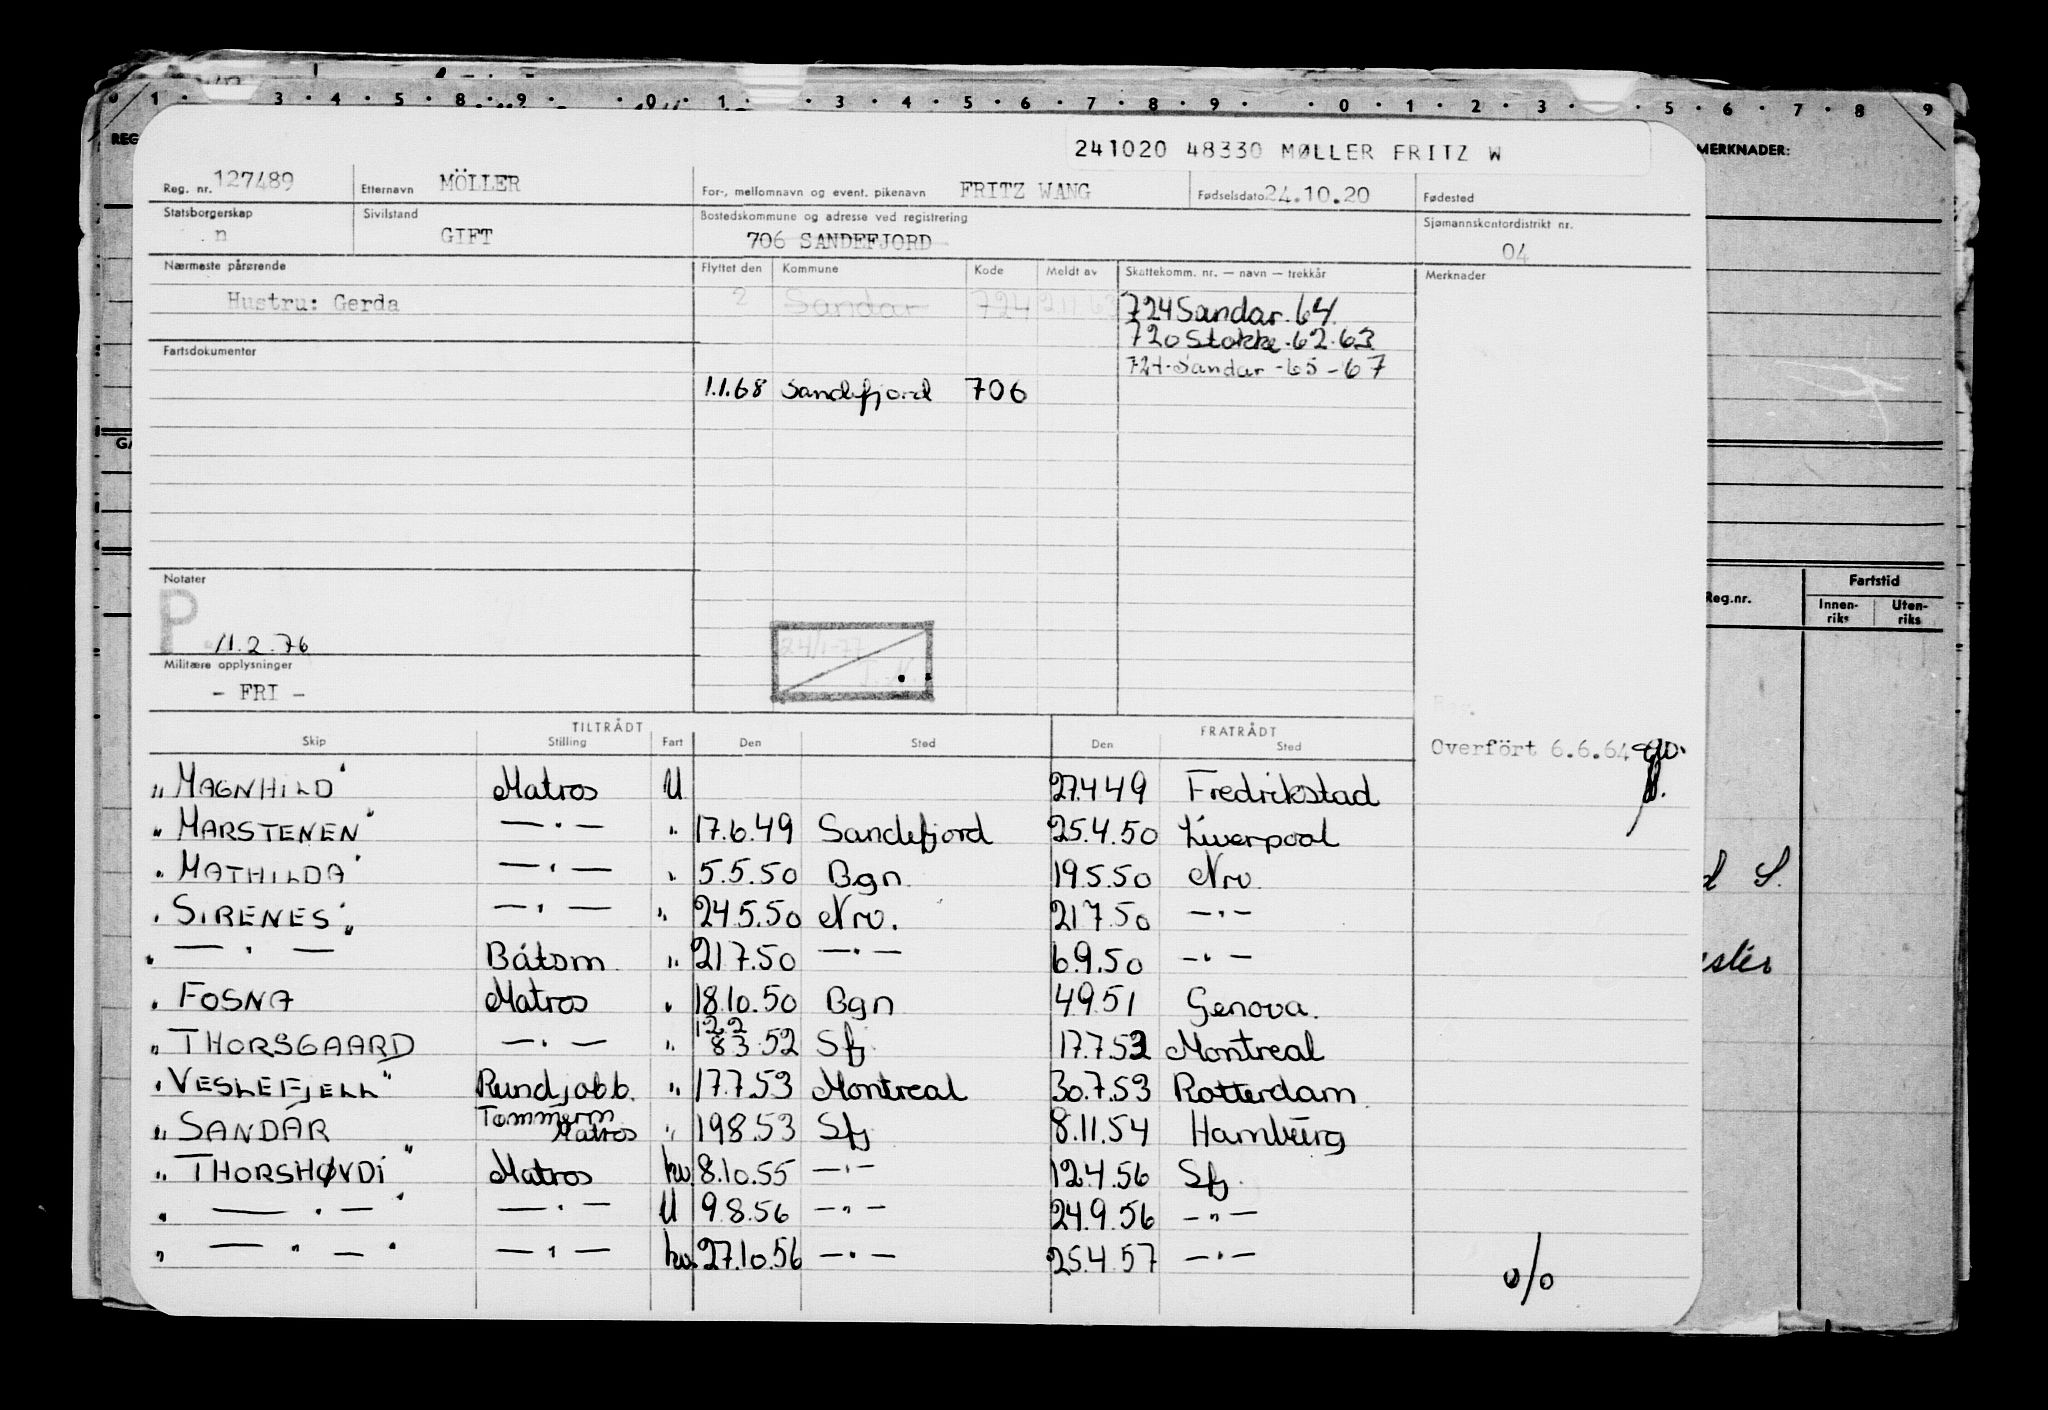 1 3 4 5 8 9 0 1 3 4 5 6 7 8 9 0 1 2 3 5 6 7 8 9
REG
MERKNADER:
241020 48330 MØLLER FRITZ W
Reg. nr. 127489 Etternavn MÖLLER For-, mellomnavn og event. pikenavn FRITZ WANG Fødselsdato 24.10.20 Fødested
Statsborgerskap Sivilstand Bostedskommune og adresse ved registrering Sjømannskontordistrikt nr.
n GIFT 706 SANDEFJORD 04
Nærmeste pårørende Flyttet den Kommune Kode Meldt av Skattekomm. nr. — navn — trekkår Merknader
Hustru: Gerda 2 Sandar 724 724 Sandar. 64.
720 Stokke. 62. 63
Fartsdokumenter 724. Sandar - 65 - 67
1.1.68 Sandefjord 706
Notater
P
11.2.76
24/1-77
Militære opplysninger
- FRI -
Reg.nr. Fartstid
Innen-riks Uten-riks
TILTRÅDT FRATRÅDT
Skip Stilling Fart Den Sted Den Sted
Overfört 6.6.64
„ MAGNHILD" Matros U 27.4 49 Fredrikstad
„ MARSTENEN" — " — " 17.6.49 Sandefjord 25.4.50 Liverpool
„ MATHILDA" — " — " 5.5.50 Bgn. 19.5.50 Nrv.
„ SIRENES" — " — " 24.5.50 Nrv. 21 7.50 — " —
„ — " — Båtsm. " 21 7.50 — " — 6.9.50 — " —
„ FOSNA Matros " 18.10.50 Bgn 4 9 51 Genova.
„ THORSGAARD — " — " 12 2 8 3 52 Sfj 17.7.53 Montreal
„ VESLEFJELL" Rundjobb. " 17.7.53 Montreal 30.7.53 Rotterdam
„ SANDAR Tømmerm Matros " 19 8.53 Sfj 8.11.54 Hamburg
„ THORSHØVDI" Matros hv. 8.10.55 — " — 12.4.56 Sfj.
„ — " — " — " — U 9.8.56 — " — 24.9.56 — " —
„ — " — " — " — hv. 27.10.56 — " — 25.4.57 — " —
o/o